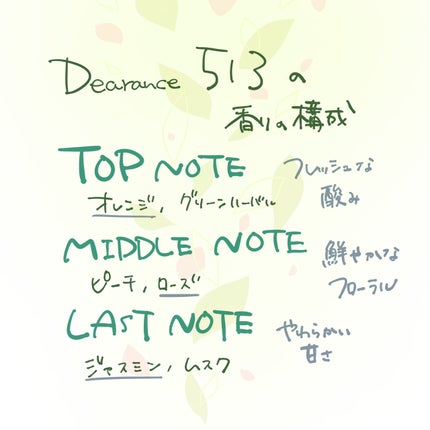 Dearance 513 の
香りの構成
TOP NOTE
オレンジ, グリーンハーバル
フレッシュな
酸み
MIDDLE NOTE
ピーチ, ローズ
鮮やかな
フローラル
LAST NOTE
ジャスミン, ムスク
やわらかい
甘さ